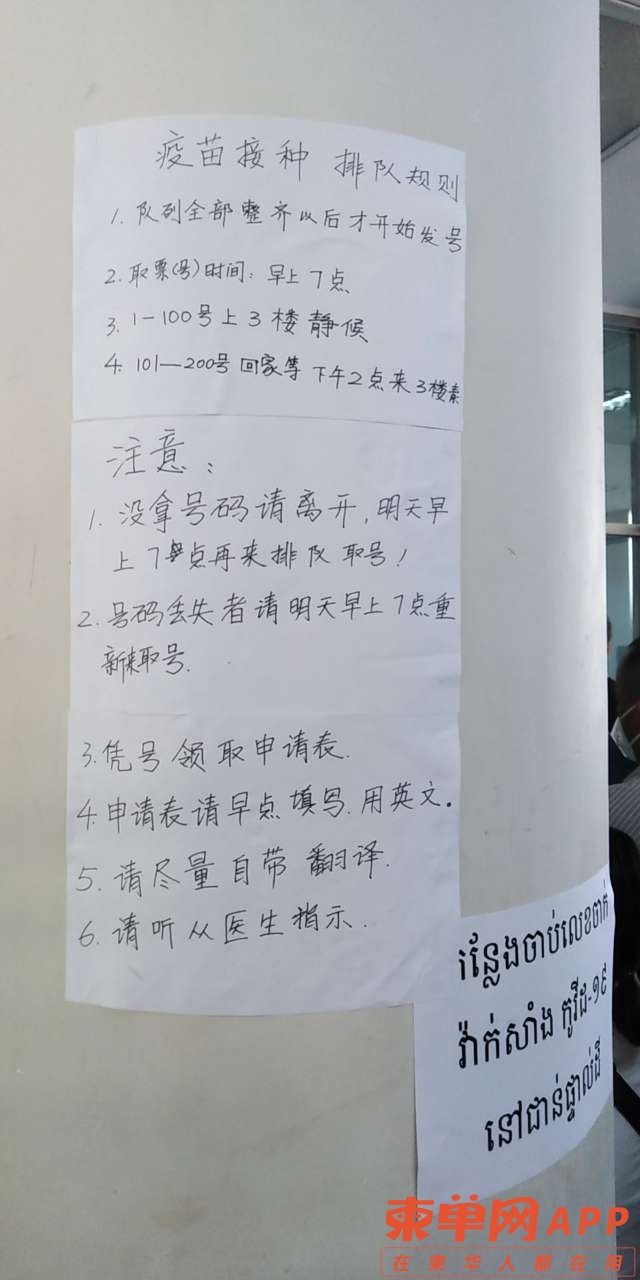 疫苗接种 排队规则
1. 队列全部整齐以后才开始发号
2. 取票(号)时间: 早上7点
3. 1-100号上3楼静候
4. 101—200号回家等 下午2点来3楼
注意:
1. 没拿号码请离开, 明天早
上7点再来排队取号!
2. 号码丢失者请明天早上7点重
新来取号.
3. 凭号领取申请表.
4. 申请表请早点填写. 用英文。
5. 请尽量自带翻译.
6. 请听从医生指示.
កន្លែងចាប់លេខចាក់
វ៉ាក់សាំង កូវីដ-១៩
នៅជាន់ផ្ទាល់ដី
柬单网APP
在柬华人都在用